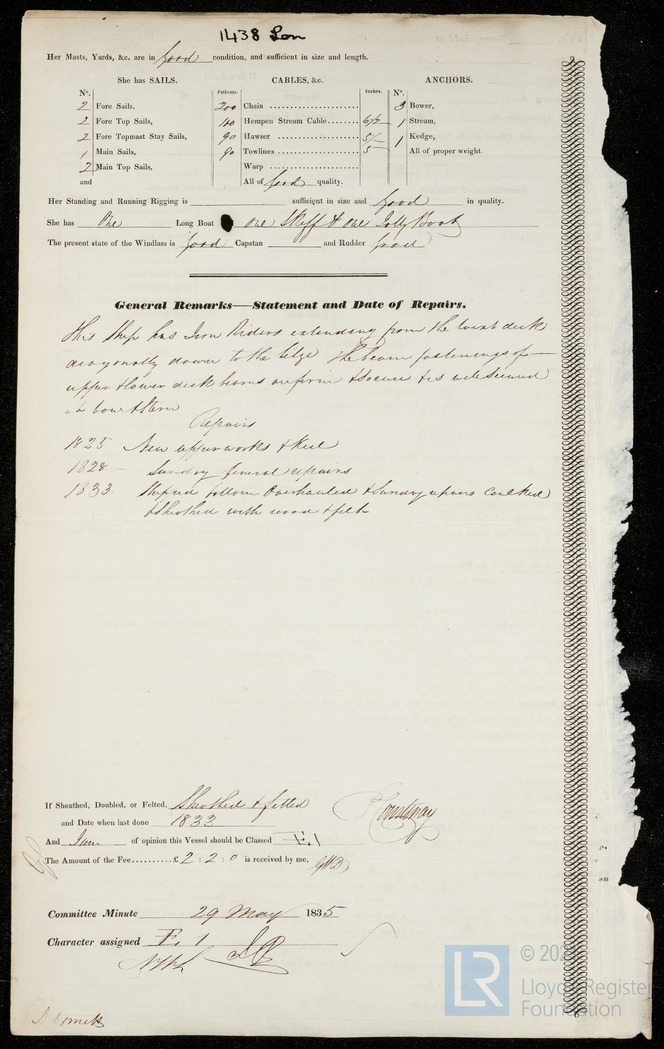 1438 Lon
Her Masts, Yards, &c. are in good condition, and sufficient in size and length.
She has SAILS.
CABLES, &c.
ANCHORS.
Nº.
Fathoms.
Inches.
Nº.
2 Fore Sails,
200 Chain
3 Bower,
2 Fore Top Sails,
Hempen Stream Cable
1 Stream,
2 Fore Topmast Stay Sails,
90 Hawser
1 Kedge,
1 Main Sails,
90 Towlines 5
All of proper weight.
2 Main Top Sails,
Warp
and
All of good quality.
Her Standing and Running Rigging is sufficient in size and good in quality.
She has One Long Boat one Skiff & one Jolly Boat
The present state of the Windlass is good Capstan and Rudder good
General Remarks—Statement and Date of Repairs.
This Ship has Iron Riders extending from the deck
diagonally down to the bilge The beam fastenings of
upper & lower deck beams are firm & secure & is well secured
at bow & stern
Repairs
1825 New upperworks & Keel
1828 Sundry general repairs
1833 Stripped bottom Overhauled & Sundry repairs Caulked
& sheathed with wood & felt
If Sheathed, Doubled, or Felted, Sheathed & felted
and Date when last done 1833
Courtenay
And I am of opinion this Vessel should be Classed E.1
The Amount of the Fee..........£ 2 : 2 : 0 is received by me,
Committee Minute 29 May 1835
Character assigned E. 1
LR
© 202
Lloyd's Register
Foundation